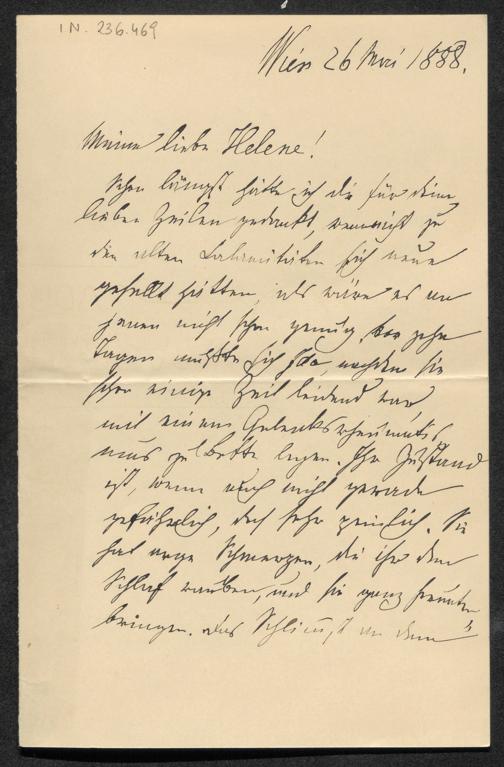 IN. 236.469
Wien 26 Mai 1888.
Meine liebe Helene!
Schon längst hätte ich dir für deine
lieben Zeilen gedankt, wenn nicht zu
den alten Calamitäten sich neue
gesellt hätten, als wäre es an
jenen nicht schon genug. Vor zehn
Tagen mußte sich Ida, nachdem sie
schon einige Zeit leidend war
mit einem Gelenksrheumatis
mus zu Bette legen. Ihr Zustand
ist, wenn auch nicht gerade
gefährlich, doch sehr peinlich. Sie
hat arge Schmerzen, die ihr den
Schlaf rauben, und sie ganz herunter
bringen. Das Schlimmste an dem